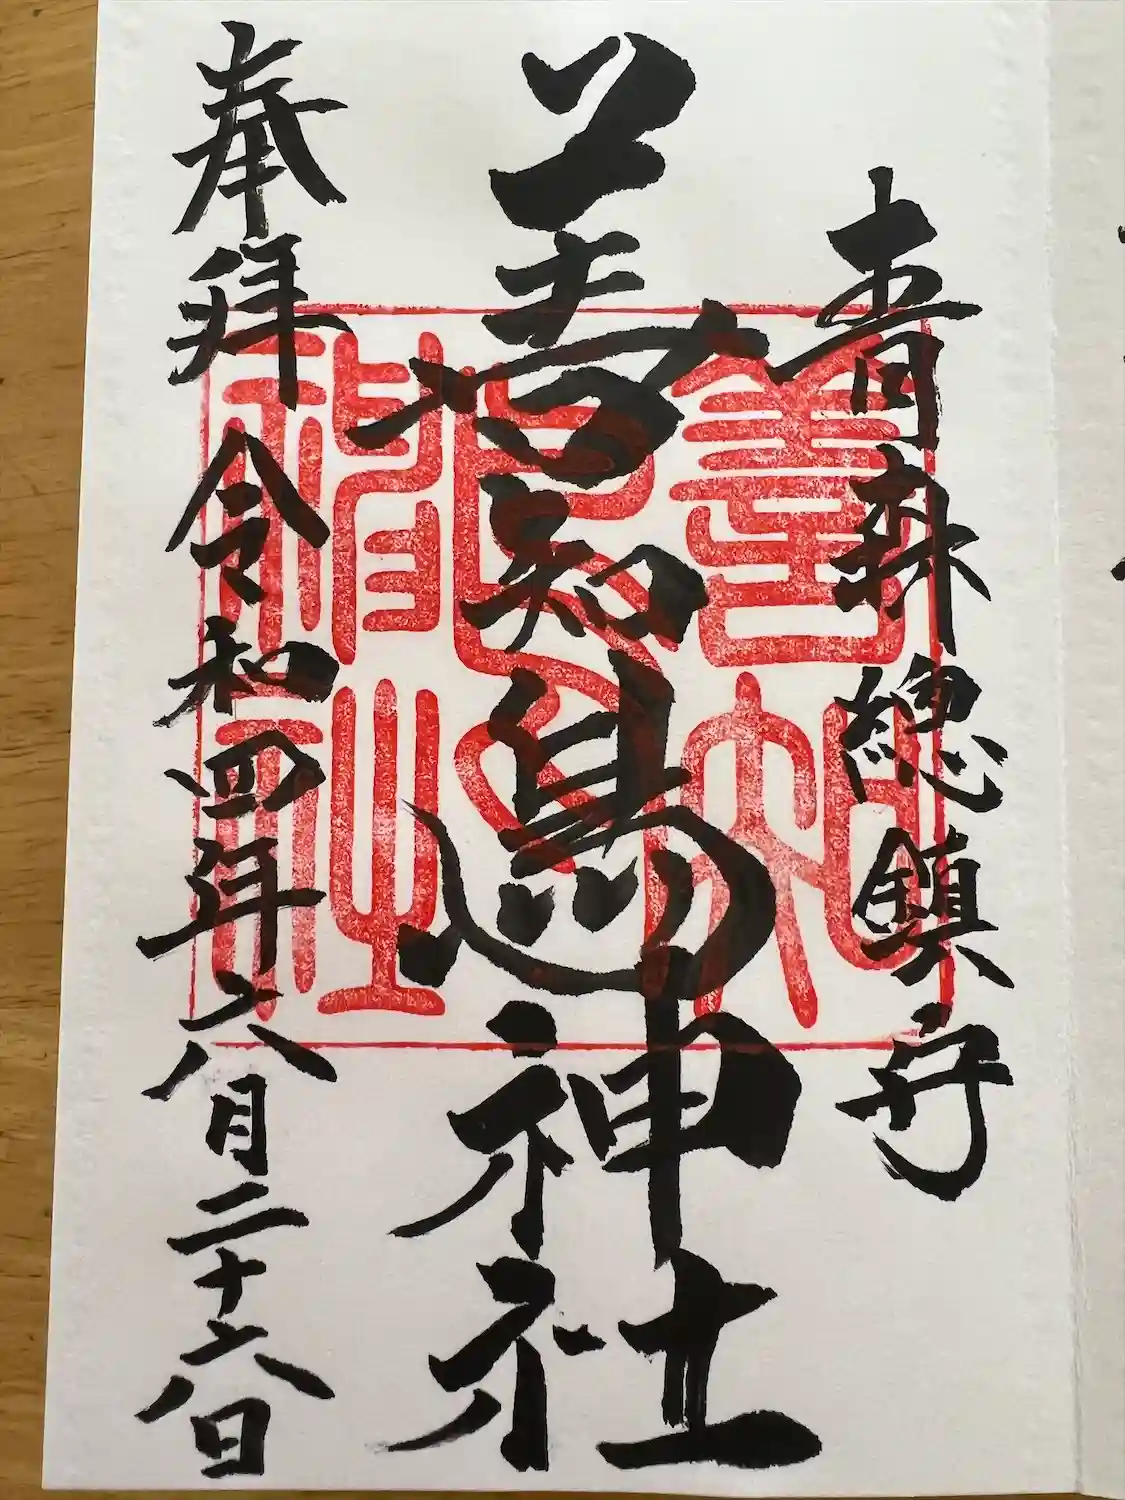 青森總鎮守
善知鳥神社
奉拝 令和四年六月二十六日
善知鳥神社